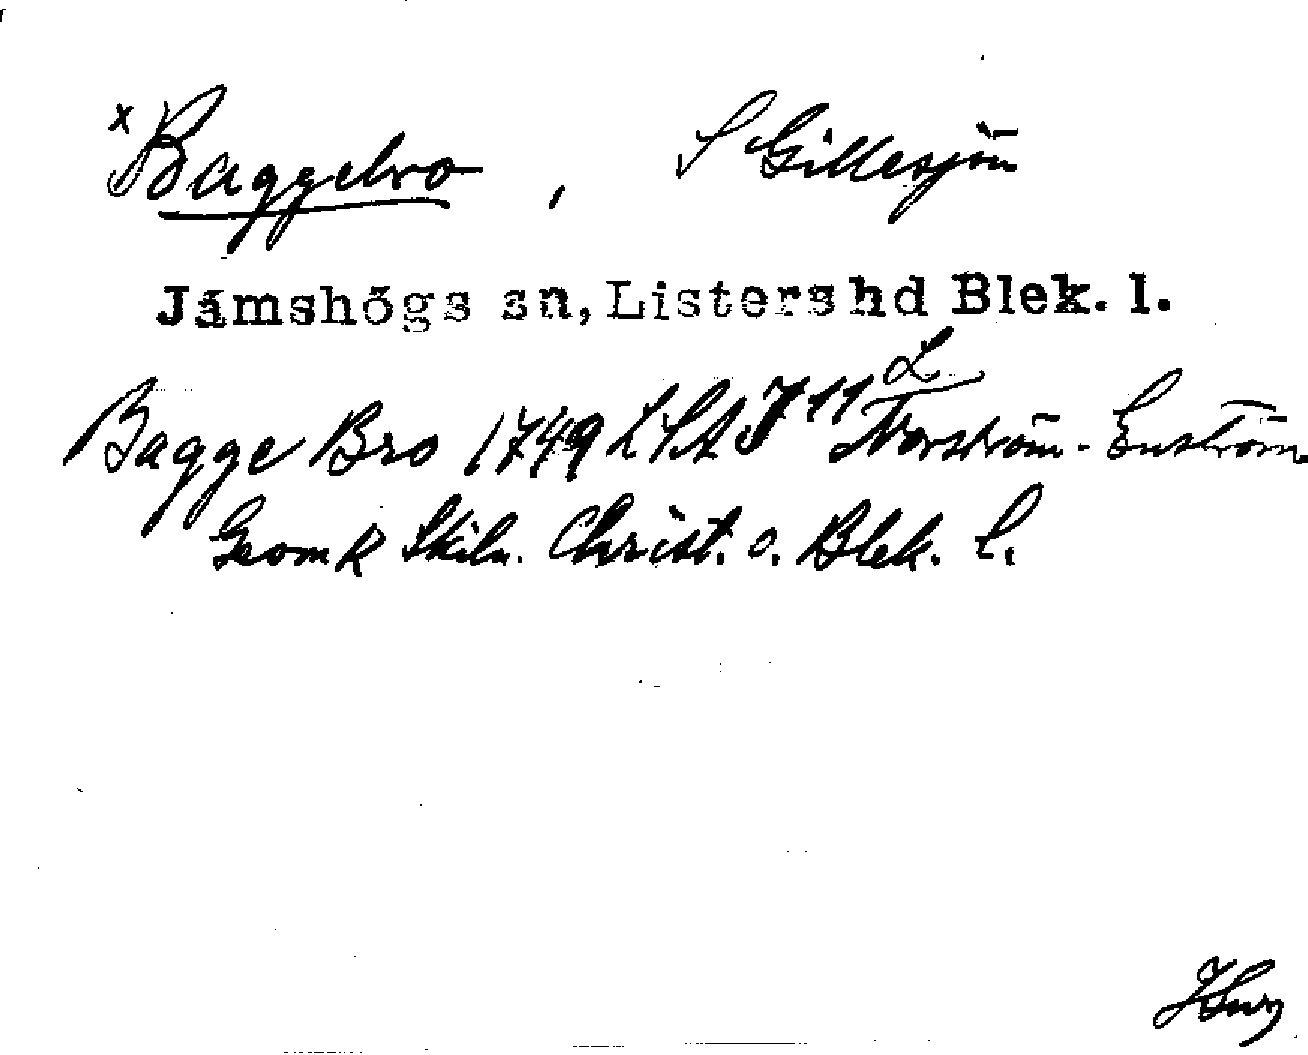 x Baggebro, S Gillesjön
Jämshögs sn, Listers hd Blek. l.
Bagge Bro 1749 LSA J 11 L Norström - Enström
Geom K Skiln. Christ. o. Blek. l.